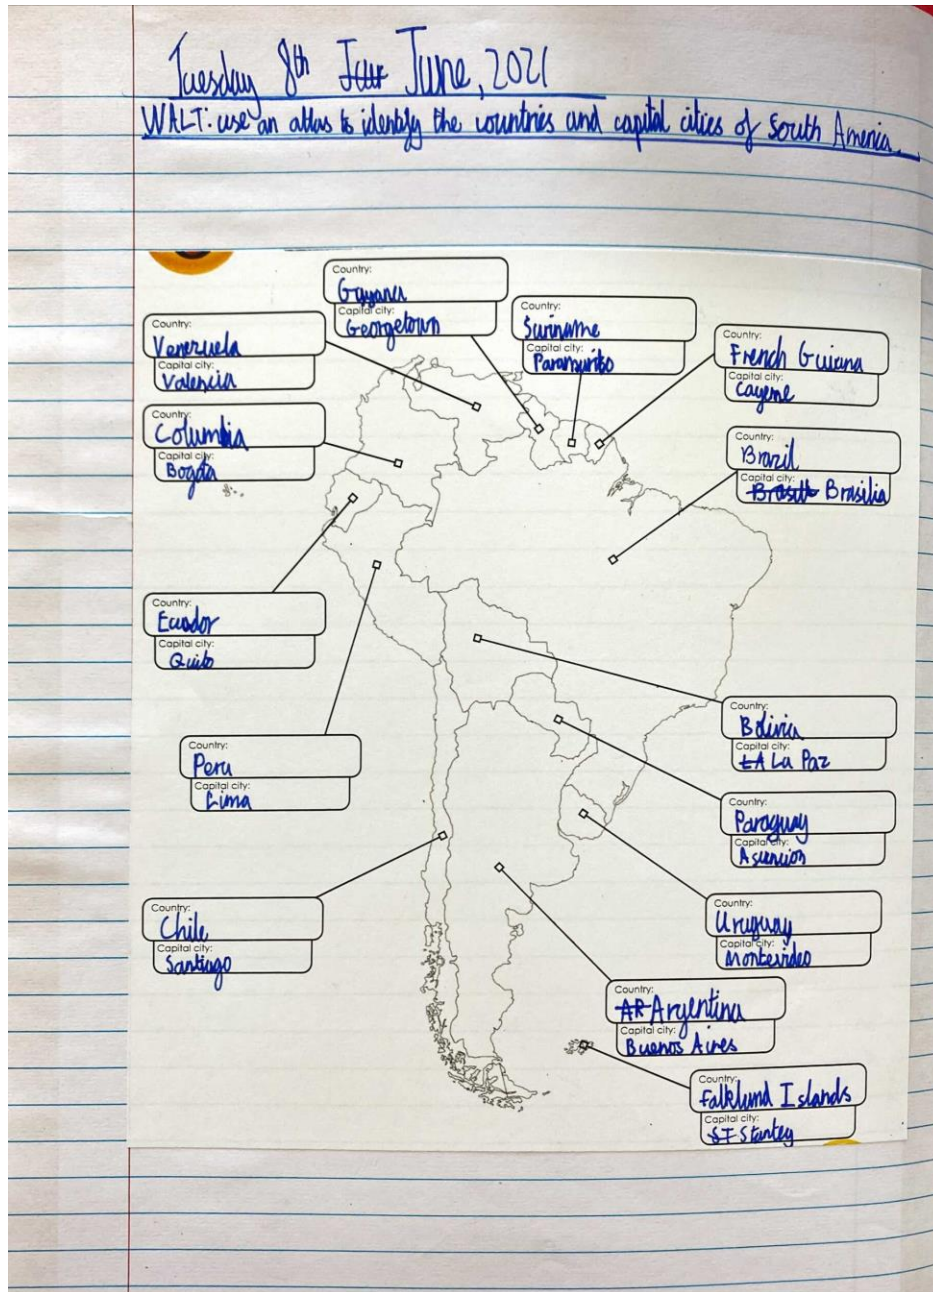 Tuesday 8th Jur June, 2021
WALT: use an atlas to identify the countries and capital cities of South America.
Country:
Guyana
Capital city:
Georgetown
Country:
Suriname
Capital city:
Paramaribo
Country:
Venezuela
Capital city:
Valencia
Country:
French Guiana
Capital city:
Cayene
Country:
Columbia
Capital city:
Bogota
Country:
Brazil
Capital city:
Brasilia
Country:
Ecuador
Capital city:
Quito
Country:
Bolivia
Capital city:
LA La Paz
Country:
Peru
Capital city:
Lima
Country:
Paraguay
Capital city:
Asuncion
Country:
Chile
Capital city:
Santiago
Country:
Uruguay
Capital city:
Montevideo
Country:
AR Argentina
Capital city:
Buenos Aires
Country:
Falklund Islands
Capital city:
ST Stanley